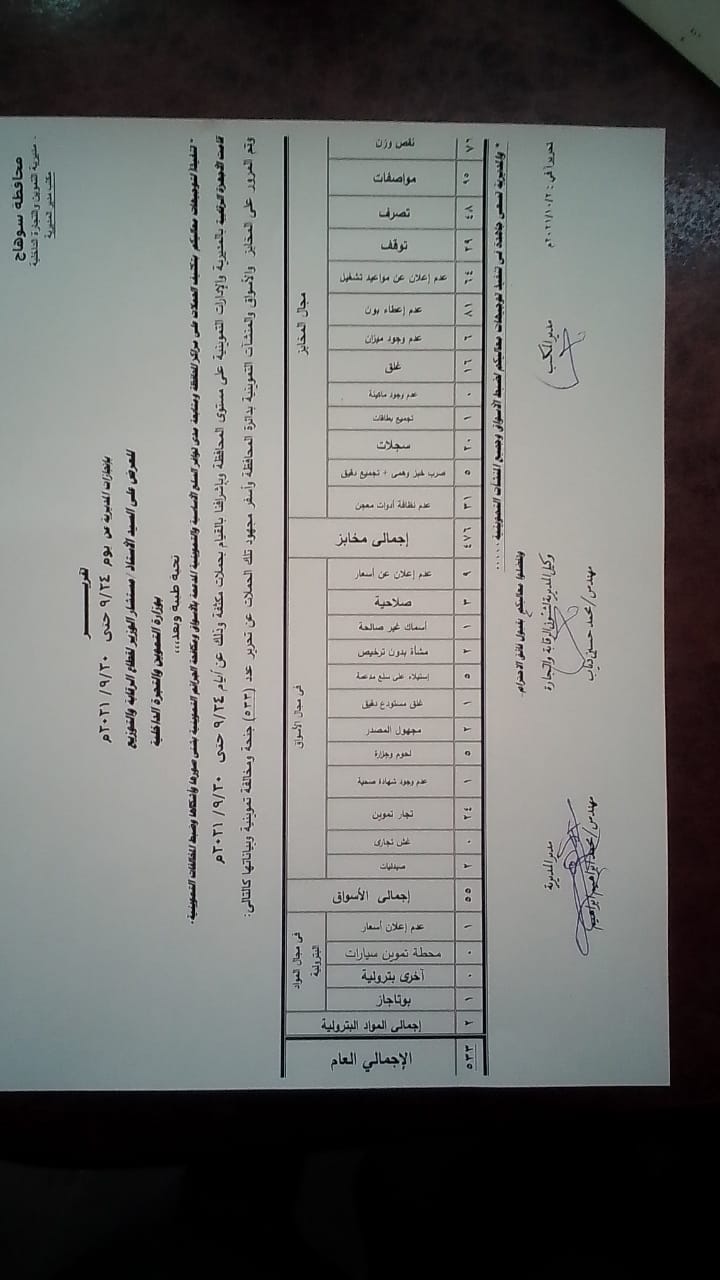 محافظة سوهاج
مديرية التموين والتجارة الداخلية
مكتب مدير المديرية
تقريــــــر
بإنجازات المديرية عن يوم ٩/٢٤ حتى ٢٠٢١/٩/٣٠م
للعرض على السيد الأستاذ / مستشار الوزير لقطاع الرقابة والتوزيع
بوزارة التموين والتجارة الداخلية
تحية طيبة وبعد،،،
تنفيذا لتوجيهات معاليكم بتكثيف الحملات على مراكز المحافظة ومتابعة مدى توافر السلع الأساسية والتموينية المدعمة بالأسواق ومكافحة الجرائم التموينية بشتى صورها وأشكالها وضبط المخالفات التموينية .
قامت الأجهزة الرقابية بالمديرية والإدارات التموينية على مستوى المحافظة وبإشرافنا بالقيام بحملات مكثفة وذلك عن أيام ٩/٢٤ حتى ٢٠٢١/٩/٣٠م
وتم المرور على المخابز والأسواق والمنشآت التموينية بدائرة المحافظة وأسفر مجهود تلك الحملات عن تحرير عدد (٥٣٣) جنحة ومخالفة تموينية وبياناتها كالتالى:
مجال المخابز
نقص وزن ٧٦
مواصفات ٩٥
تصرف ٤٨
توقف ٢٩
عدم إعلان عن مواعيد تشغيل ٦٤
عدم إعطاء بون ٨١
عدم وجود ميزان ٦
غلق ١٦
عدم وجود ماكينة ٠
تجميع بطاقات ١
سجلات ٢٠
صرب خبز وهمى + تجميع دقيق ٥
عدم نظافة أدوات معجن ٣١
إجمالى مخابز ٤٧٦
فى مجال الأسواق
عدم إعلان عن أسعار ٩
صلاحية ٣
أسماك غير صالحة ١
منشأة بدون ترخيص ٢
إستيلاء على سلع مدعمة ٥
غلق مستودع دقيق ١
مجهول المصدر ٢
لحوم وجزارة ٥
عدم وجود شهادة صحية ١
تجار تموين ٢٤
غش تجارى ٠
صيدليات ٢
إجمالى الأسواق ٥٥
فى مجال المواد البترولية
عدم إعلان أسعار ١
محطة تموين سيارات ٠
أخرى بترولية ٠
بوتاجاز ١
إجمالى المواد البترولية ٢
الإجمالي العام ٥٣٣
* والمديرية تسعى جاهدة فى تنفيذ توجيهات معاليكم لضبط الأسواق وجميع المنشآت التموينية .....
وتفضلوا معاليكم بقبول فائق الاحترام
تحريرا فى : ٢٠٢١/١٠/٢م
مدير المكتب
وكيل المديرية لشئون الرقابة والتجارة
مهندس / محمد حسين دياب
مدير المديرية
مهندس / محمد إبراهيم إبراهيم